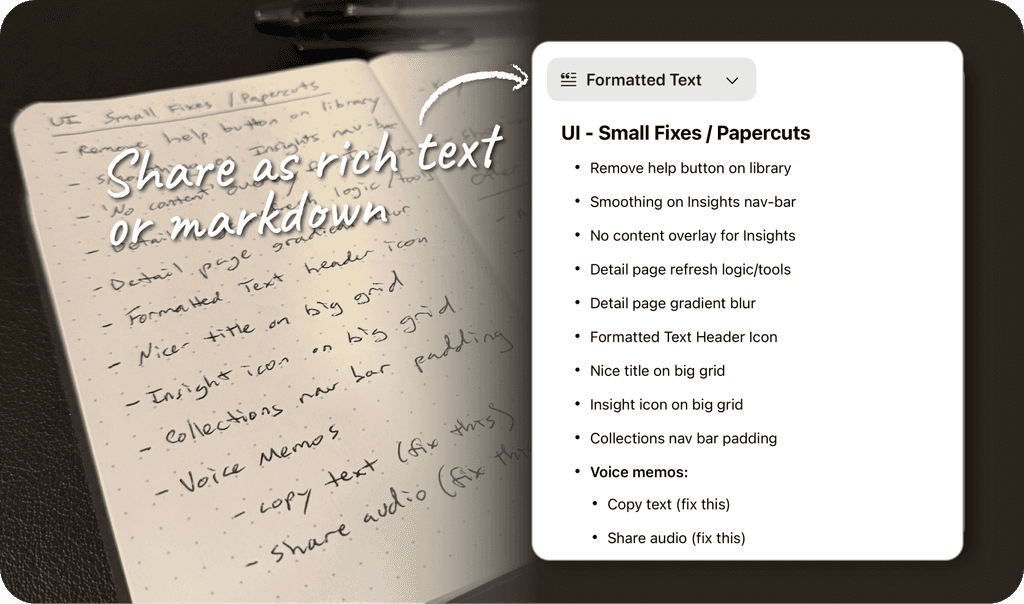 UI Small Fixes / Papercuts
- Remove help button on library
on Insights nav-bar
- No content
logic/tools
- Detail page
- Formatted Text header icon
- Nicer title on big grid
- Insight icon on big grid
- Collections nav bar padding
- Voice Memos
- copy text (fix this)
- share audio (fix this
Share as rich text
or markdown
Formatted Text
UI - Small Fixes / Papercuts
• Remove help button on library
• Smoothing on Insights nav-bar
• No content overlay for Insights
• Detail page refresh logic/tools
• Detail page gradient blur
• Formatted Text Header Icon
• Nice title on big grid
• Insight icon on big grid
• Collections nav bar padding
• Voice memos:
• Copy text (fix this)
• Share audio (fix this)